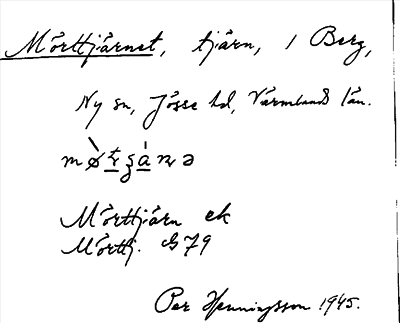 Mörttjärnet, tjärn, i Berg,
Ny sn, Jösse hd, Värmlands län.
Mörttjärn ek
Mörttj. G 79
Per Henningsson 1945.